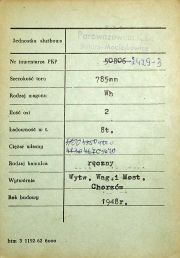 Jednostka służbowa
Nr inwentarza PKP 50806 2429-3
Szerokość toru 785mm
Rodzaj wagonu Wh
Ilość osi 2
Ładowność w t. 8t.
Ciężar własny
Rodzaj hamulca ręczny
Wytwórnia Wytw. Wag. i Most. Chorzów
Rok budowy 1948r.